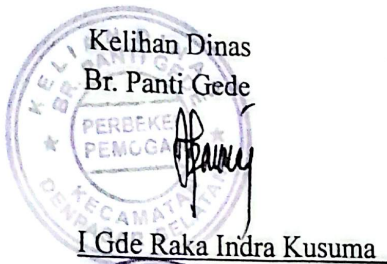 Kelihan Dinas
Br. Panti Gede
KELIHAN DINAS
BR. PANTI GEDE
PERBEKEL
PEMOGAN
KECAMATAN
DENPASAR SELATAN
I Gde Raka Indra Kusuma